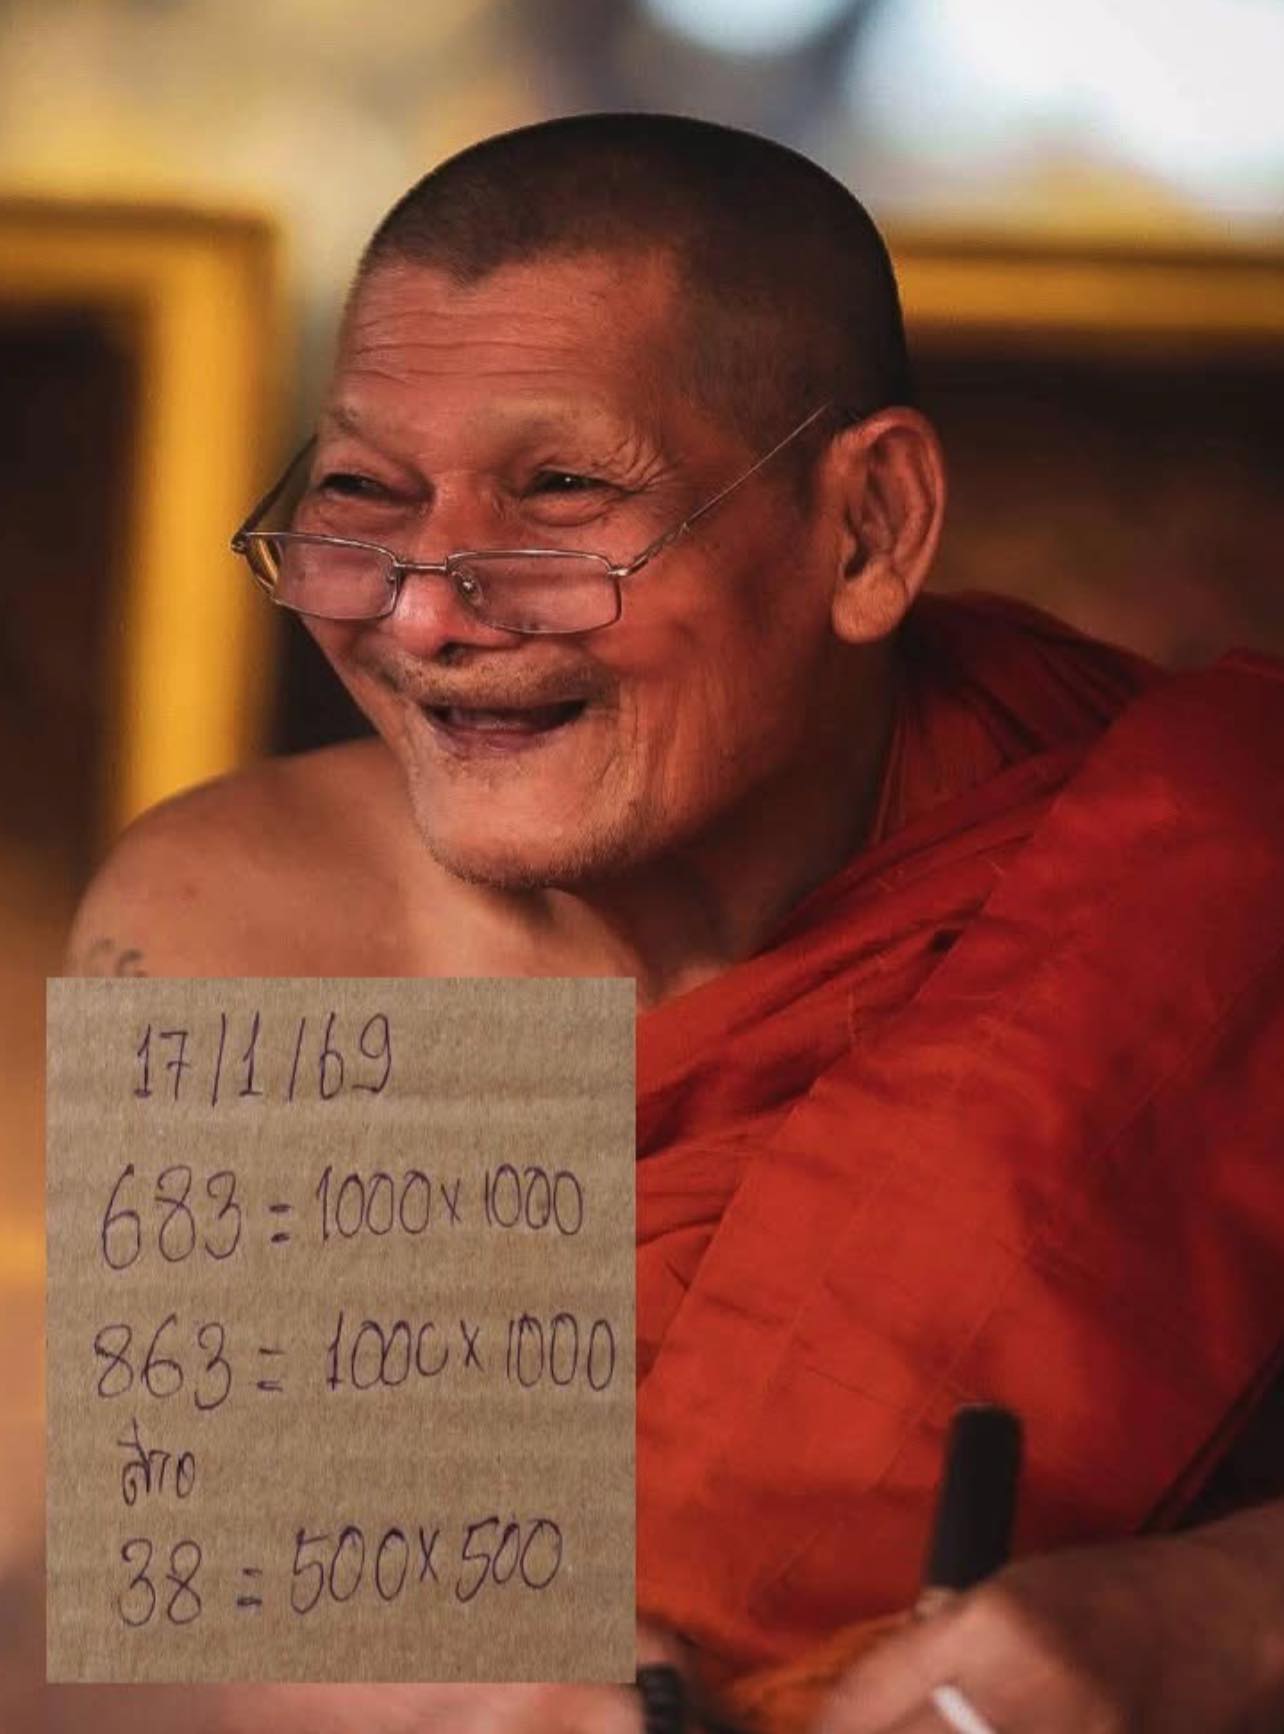 17/1/69
683 = 1000x1000
863 = 1000x1000
ล่าง
38 = 500x500